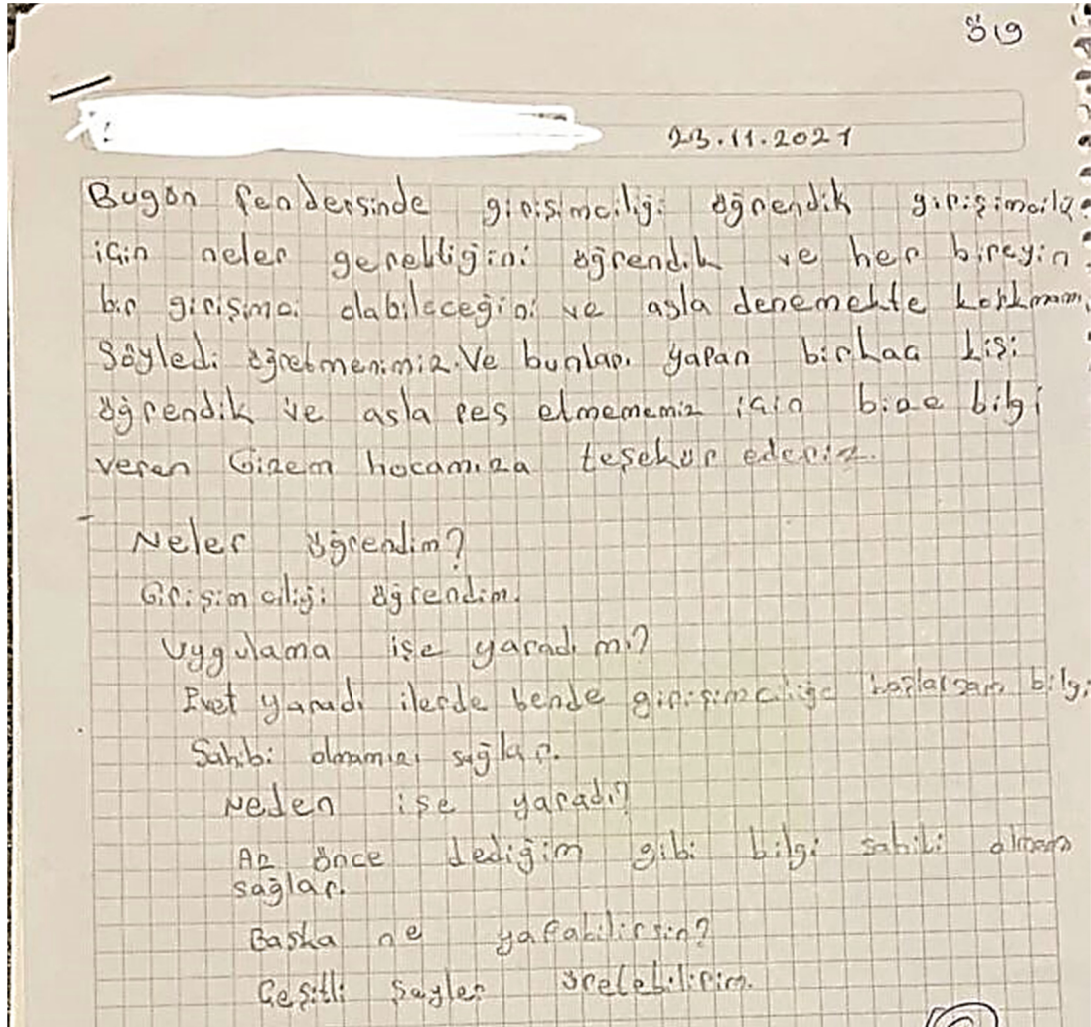 Ö19
23.11.2021
Bugün fen dersinde girişimciliği öğrendik girişimcilik
için neler gerektiğini öğrendik ve her bireyin
bir girişimci olabileceğini ve asla denemekte korkmam
Söyledi öğretmenimiz. Ve bunları yapan birkaç kişi
öğrendik ve asla pes etmememiz için bize bilgi
veren Gizem hocamıza teşekür ederiz.
Neler öğrendim?
Girişimciliği öğrendim.
Uygulama işe yaradı mı?
Evet yaradı ilerde bende girişimciliğe başlarsam bilgi
Sahibi olmamızı sağlar.
Neden işe yaradı?
Az önce dediğim gibi bilgi sahibi olmam
sağlar.
Başka ne yapabilirsin?
Çeşitli şeyler üretebilirim.